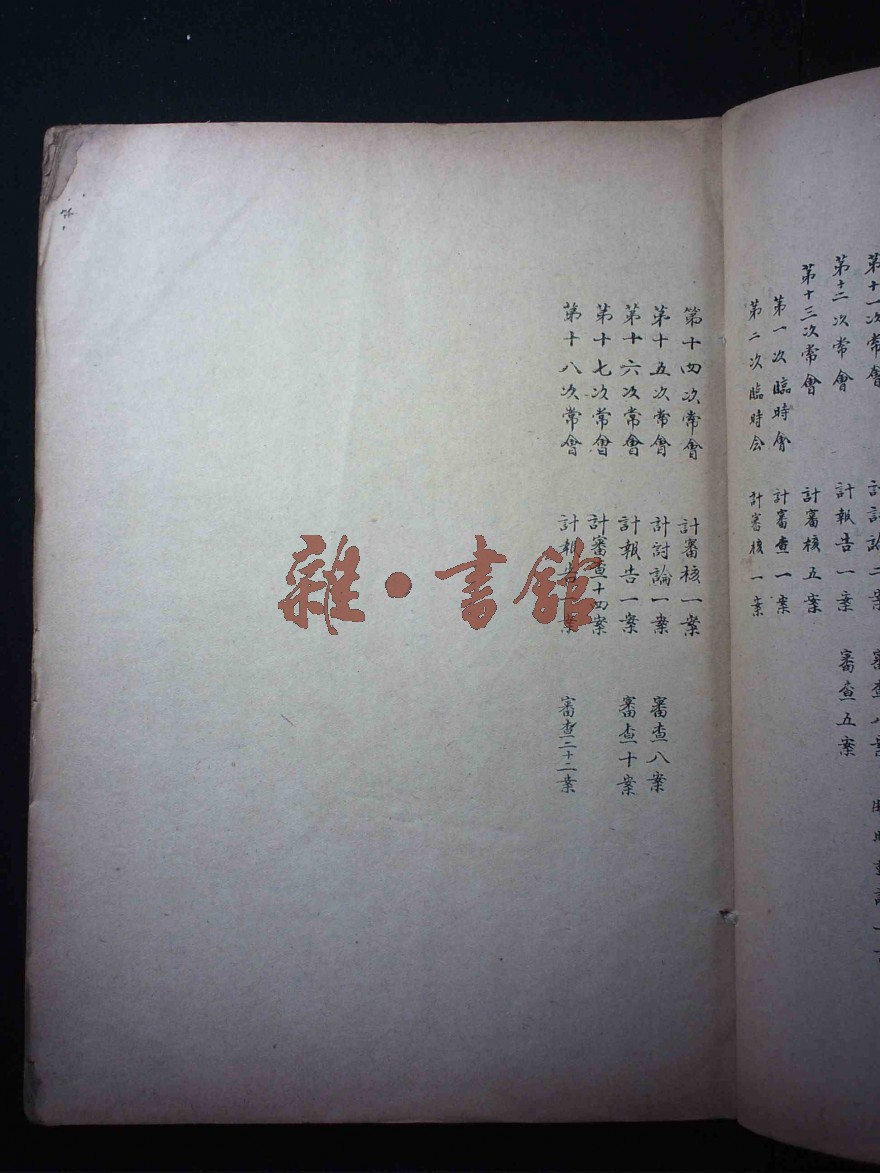 第十一次常會 計討論二案 審查八案 臨時
第十二次常會 計報告一案 審查五案
第十三次常會 計審核五案
第一次臨時會 計審查一案
第二次臨時会 計審核一案
第十四次常會 計審核一案
第十五次常會 計討論一案 審查八案
第十六次常會 計報告一案 審查十案
第十七次常會 計審查十四案
第十八次常會 計報告一案 審查二十二案
雜·書館